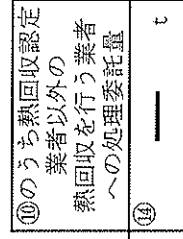 ⑩のうち熱回収認定
業者以外の
熱回収を行う業者
への処理委託量
⑭ ー t